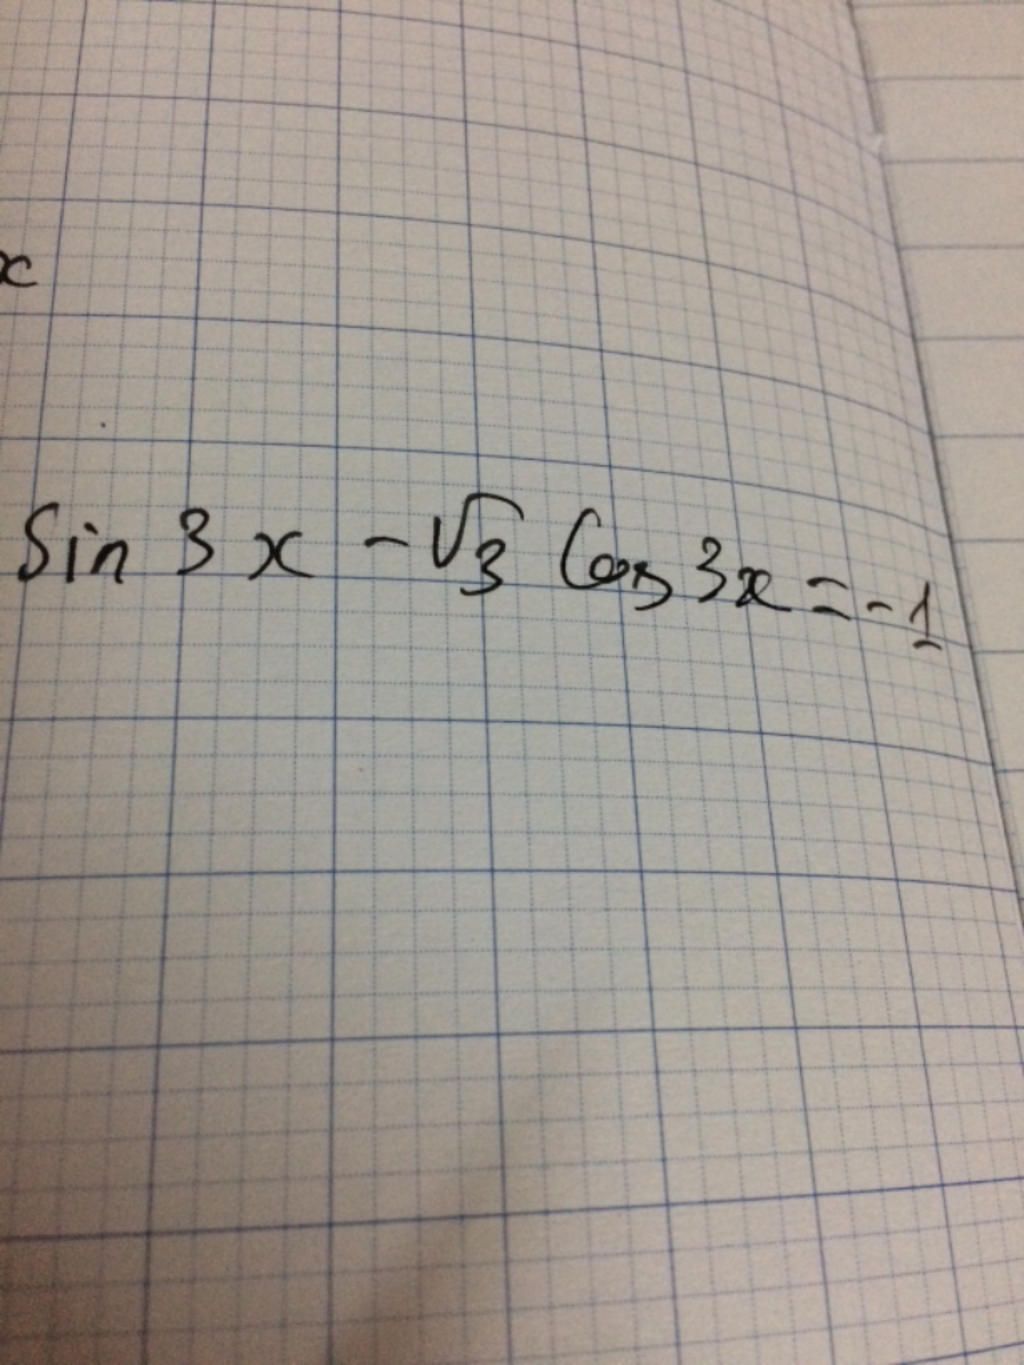 x
Sin 3x - √3 Cos 3x = -1